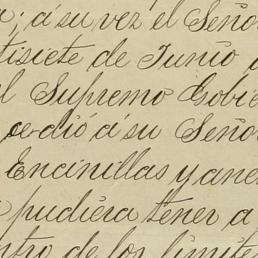 ; á su vez el Señor
tisiete de Junio
l Supremo Gobie
cedió á su Señor
Encinillas y ane
pudiera tener a
ntro de los limite